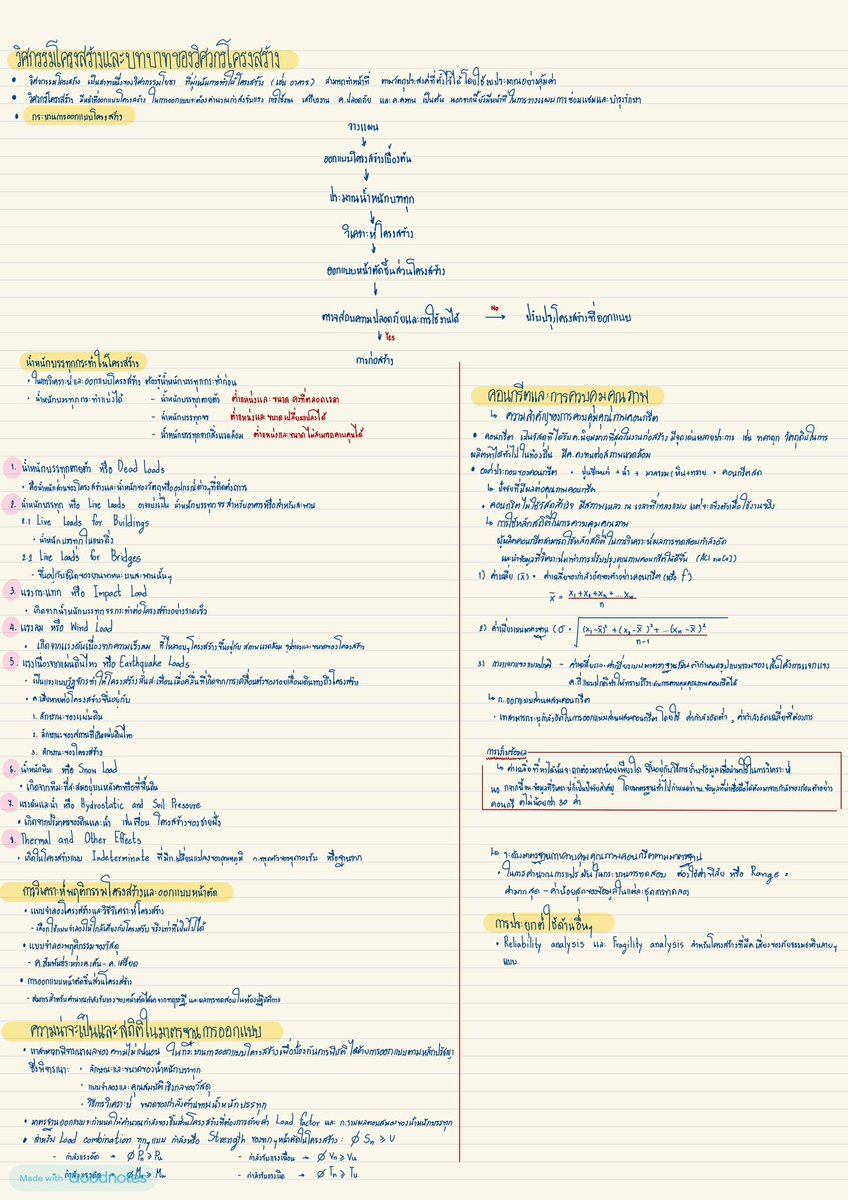 วิศกรรมโครงสร้างและบทบาทของวิศวกรโครงสร้าง
• วิศวกรรมโครงสร้าง เป็นสาขาหนึ่งของวิศวกรรมโยธา ที่มุ่งเน้นการทำให้โครงสร้าง (เช่น อาคาร) สามารถทำหน้าที่ ตามวัตถุประสงค์ที่ตั้งไว้ได้ โดยใช้งบประมาณอย่างคุ้มค่า
• วิศวกรโครงสร้าง มีหน้าที่ออกแบบโครงสร้าง ในการออกแบบจะต้องคำนวณกำลังรับแรง การใช้งาน เสถียรภาพ ค.ปลอดภัย และ ค.คงทน เป็นต้น นอกจากนี้ยังมีหน้าที่ในการวางแผนการซ่อมแซมและบำรุงรักษา
• กระบวนการออกแบบโครงสร้าง
วางแผน
ออกแบบโครงสร้างเบื้องต้น
ประมาณน้ำหนักบรรทุก
วิเคราะห์โครงสร้าง
ออกแบบหน้าตัดชิ้นส่วนโครงสร้าง
ตรวจสอบความปลอดภัยและการใช้งานได้ → No ปรับปรุงโครงสร้างที่ออกแบบ
↓ Yes
การก่อสร้าง
น้ำหนักบรรทุกกระทำในโครงสร้าง
• ในการวิเคราะห์และออกแบบโครงสร้าง ต้องรู้น้ำหนักบรรทุกกระทำก่อน
• น้ำหนักบรรทุกกระทำแบ่งได้ - น้ำหนักบรรทุกตายตัว ตำแหน่งและขนาด คงที่ตลอดเวลา
- น้ำหนักบรรทุกจร ตำแหน่งและขนาดเปลี่ยนแปลงได้
- น้ำหนักบรรทุกจากสิ่งแวดล้อม ตำแหน่งและขนาดไม่สามารถควบคุมได้
1. น้ำหนักบรรทุกตายตัว หรือ Dead Loads
• คือน้ำหนักของโครงสร้างและน้ำหนักของวัสดุหรืออุปกรณ์ต่างๆที่ติดตั้งถาวร
2. น้ำหนักบรรทุก หรือ Live Loads อาจแบ่งเป็น น้ำหนักบรรทุกจร สำหรับอาคารหรือสำหรับสะพาน
2.1 Live Loads for Buildings
• น้ำหนักบรรทุกในแนวดิ่ง
2.2 Live Loads for Bridges
- ขึ้นอยู่กับชนิดของยานพาหนะบนสะพานนั้นๆ
3. แรงกระแทก หรือ Impact Load
• เกิดจากน้ำหนักบรรทุกจรกระทำต่อโครงสร้างอย่างรวดเร็ว
4. แรงลม หรือ Wind Load
• เกิดจากแรงดันเนื่องจากความเร็วลม ที่ไหลรอบๆโครงสร้าง ขึ้นอยู่กับ สภาพแวดล้อม รูปทรงและขนาดของโครงสร้าง
5. แรงเนื่องจากแผ่นดินไหว หรือ Earthquake Loads
• เป็นแรงแบบวัฏจักรทำให้โครงสร้างสั่นสะเทือนเมื่อคลื่นที่เกิดจากการเคลื่อนตัวของรอยเลื่อนเดินทางถึงโครงสร้าง
• ค.เสียหายต่อโครงสร้างขึ้นอยู่กับ
1. ลักษณะของแผ่นดิน
2. ลักษณะของสถานที่เกิดแผ่นดินไหว
3. ลักษณะของโครงสร้าง
6. น้ำหนักหิมะ หรือ Snow Load
• เกิดจากหิมะที่สะสมอยู่บนหลังคาหรือที่พื้นดิน
7. แรงดันและน้ำ หรือ Hydrostatic and Soil Pressure
• เกิดจากปริมาตรของดินและน้ำ เช่น เขื่อน โครงสร้างชายฝั่ง
8. Thermal and Other Effects
• เกิดในโครงสร้างแบบ Indeterminate ที่มีก.เปลี่ยนแปลงของอุณหภูมิ ก.ทรุดตัวของจุดรองรับ หรือฐานราก
การวิเคราะห์พฤติกรรมโครงสร้างและออกแบบหน้าตัด
• แบบจำลองโครงสร้างและวิธีวิเคราะห์โครงสร้าง
- เลือกใช้แบบจำลองให้ใกล้เคียงกับโครงสร้าง จริงเท่าที่เป็นไปได้
• แบบจำลองพฤติกรรมของวัสดุ
- ค.สัมพันธ์ระหว่าง ค.เค้น - ค.เครียด
• การออกแบบหน้าตัดชิ้นส่วนโครงสร้าง
- สมการสำหรับคำนวณกำลังรับแรงของหน้าตัดได้มาจากทฤษฎี และผลการทดสอบในห้องปฏิบัติการ
ความน่าจะเป็นและสถิติในมาตรฐานการออกแบบ
ซึ่งพิจารณา: • ลักษณะและขนาดของน้ำหนักบรรทุก
• แบบจำลองและคุณสมบัติเชิงกลของวัสดุ
• วิธีการวิเคราะห์ ขนาดของกำลังต้านทานน้ำหนักบรรทุก
• มาตรฐานออกแบบจะกำหนดให้คำนวณกำลังของชิ้นส่วนโครงสร้างที่ต้องการด้วยค่า Load factor และ ก.รวมผลตอบสนองของน้ำหนักบรรทุก
• สำหรับ Load combination ทุกๆแบบ กำลังหรือ Strength ของทุกๆหน้าตัดในโครงสร้าง : Ø Sn ≥ U
- กำลังแรงอัด → Ø Pn ≥ Pu - กำลังรับแรงเฉือน → Ø Vn ≥ Vu
- กำลังแรงดัด → Ø Mn ≥ Mu - กำลังรับแรงบิด → Ø Tn ≥ Tu
Made with Goodnotes
คอนกรีตและการควบคุมคุณภาพ
↳ ความสำคัญของการควบคุมคุณภาพคอนกรีต
• คอนกรีต เป็นวัสดุที่ได้รับ ค.นิยมมากที่สุดในงานก่อสร้าง มีจุดเด่นหลายประการ เช่น หาถูก วัตถุดิบในการ
ผลิตหาได้ทั่วไปในท้องถิ่น มีค.คงทนต่อสภาพแวดล้อม
• องค์ประกอบของคอนกรีต • ปูนซีเมนต์ + น้ำ + มวลรวม (หิน+ทราย) = คอนกรีตสด
↳ ปัจจัยที่มีผลต่อคุณภาพคอนกรีต
• คอนกรีตไม่ใช่วัสดุสำเร็จ มีสภาพเหลว ณ เวลาที่เทลงแบบ แต่จะแข็งตัวเมื่อใช้งานจริง
↳ การใช้หลักสถิติในการควบคุมคุณภาพ
ผู้ผลิตคอนกรีตสามารถใช้หลักสถิติ ในการวิเคราะห์ผลการทดสอบกำลังอัด
และนำข้อมูลที่วิเคราะห์มาทำการปรับปรุงคุณภาพคอนกรีตให้ดีขึ้น
1) ค่าเฉลี่ย (x̄) = ค่าเฉลี่ยของกำลังอัดของตัวอย่างคอนกรีต (หรือ f')
x̄ = x₁ + x₂ + x₃ + ... xₙ / n
2) ค่าเบี่ยงเบนมาตรฐาน (σ = √ (x₁-x̄)² + (x₂-x̄)² + ...(xₙ-x̄)² / n-1
3) การแจกแจงแบบปกติ - ค่าเฉลี่ยและค่าเบี่ยงเบนมาตรฐานเป็นตัวกำหนดรูปแบบธรรมของเส้นโค้งการแจกแจง
↳ ก.ออกแบบส่วนผสมคอนกรีต
การเก็บข้อมูล
↳ ค่าเฉลี่ยที่หาได้นั้นจะถูกต้องมากน้อยเพียงใด ขึ้นอยู่กับวิธีการเก็บข้อมูลเพื่อนำมาใช้ในการวิเคราะห์
คอนกรีตไม่น้อยกว่า 30 ค่า
↳ ระดับมาตรฐานการควบคุมคุณภาพคอนกรีตตามมาตรฐาน
• ในการคำนวณการแปรผันในกระบวนการทดสอบ ต้องใช้ค่าพิสัย หรือ Range =
ค่ามากสุด - ค่าน้อยสุดของข้อมูลในแต่ละชุดการทดลอง
การประยุกต์ใช้ด้านอื่นๆ
• Reliability analysis และ Fragility analysis สำหรับโครงสร้างที่มีค.เสี่ยงของภัยธรรมชาติหลายๆ
แบบ